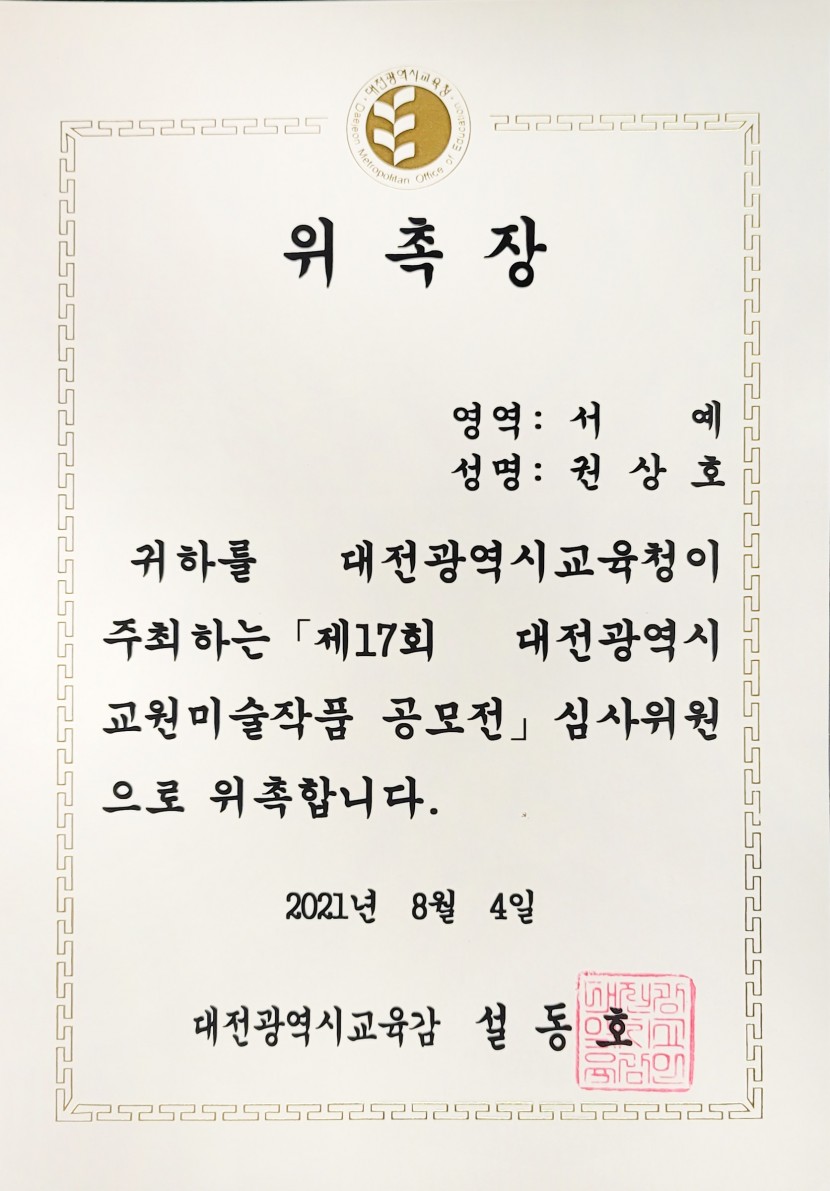 대전광역시교육청
Daejeon Metropolitan Office of Education
위 촉 장
영역: 서 예
성명: 권 상 호
귀하를 대전광역시교육청이
주최하는「제17회 대전광역시
교원미술작품 공모전」심사위원
으로 위촉합니다.
2021년 8월 4일
대전광역시교육감 설 동 호